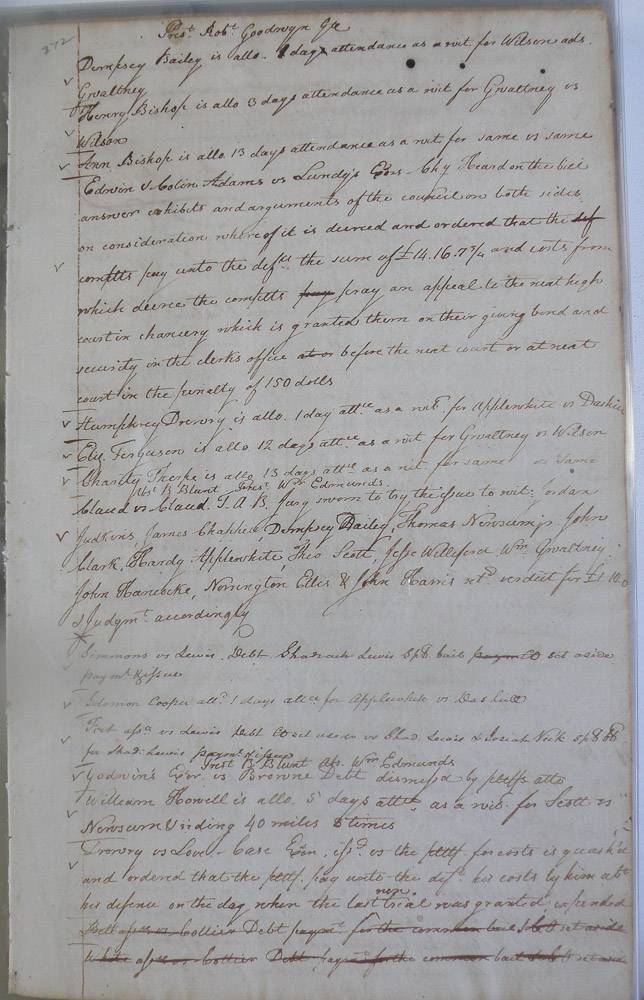 272
Prest. Robt. Goodwyn Gt
Dempsey Bailey is allo. 1 days attendance as a wit for Wilson ads.
Gwaltney
Henry Bishop is allo 3 days attendance as a wit for Gwaltney vs
Wilson
Ann Bishop is allo 13 days attendance as a wit for same vs same
Edwin & Colin Adams vs Lundy's Exors Chy Heard on the bill
answer exhibits and arguments of the council on both sides
on consideration whereof it is decreed and ordered that the def
complts pay unto the defts the sum of £14.16.7 3/4 and costs from
which decree the complts pray pray an appeal to the next high
court in chancery which is granted them on their giving bond and
security in the clerks office at or before the next court or at next
court in the penalty of 150 dolls
Humphrey Drewry is allo. 1 day attce as a wit. for Applewhite vs
Eliz. Ferguson is allo 12 days attce as a wit for Gwaltney vs Wilson
Charity Thorpe is allo 13 days attce as a wit. for same vs same
Abst B Blunt Prest Wm Edmunds
Claud vs Claud. T. A B. Jury sworn to try the issue to wit: Jordan
Judkins, James Chappell, Dempsey Bailey, Thomas Newsum, John
Clark, Hardy Applewhite, Theo Scott, Jesse Williford Wm Gwaltney
John Hancocke, Norrington Ellis & John Harris retd verdict for £1.10.0
& Judgmt. accordingly
Simmons vs Lewis. Debt Shadrach Lewis Spl bail paymt CO set aside
paymt & issue
Solomon Cooper alld. 1 days attce for Applewhite vs
assee vs Lewis Debt CO set aside vs Shad. Lewis & Josiah Vick spl bb
for Shad: Lewis paymt & issue
Prest B Blunt Abs. Wm Edmunds
Godwin's Exor. vs Browne Debt dismissd by pltffs atto
William Howell is allo. 5 days attce as a wit. for Scott vs
Newsum & riding 40 miles 2 times
Drewry vs Love. Case Exon. issd. vs the pltff for costs is quash'd
and ordered that the pltff. pay unto the deft. his costs by him abt
new
his defence on the day when the last trial was granted expended
Scott assee vs Collier Debt paymt for the common bail & CO set aside
White assee vs Collier Debt paymt for the common bail & CO set aside